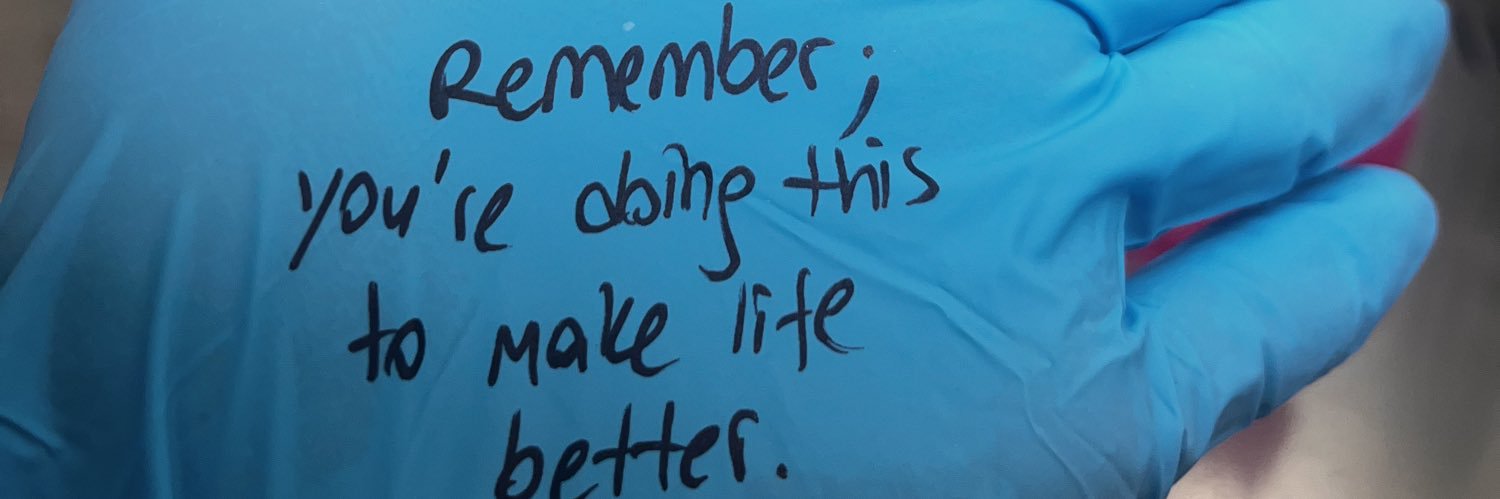 Remember;
you're doing this
to make life
better.